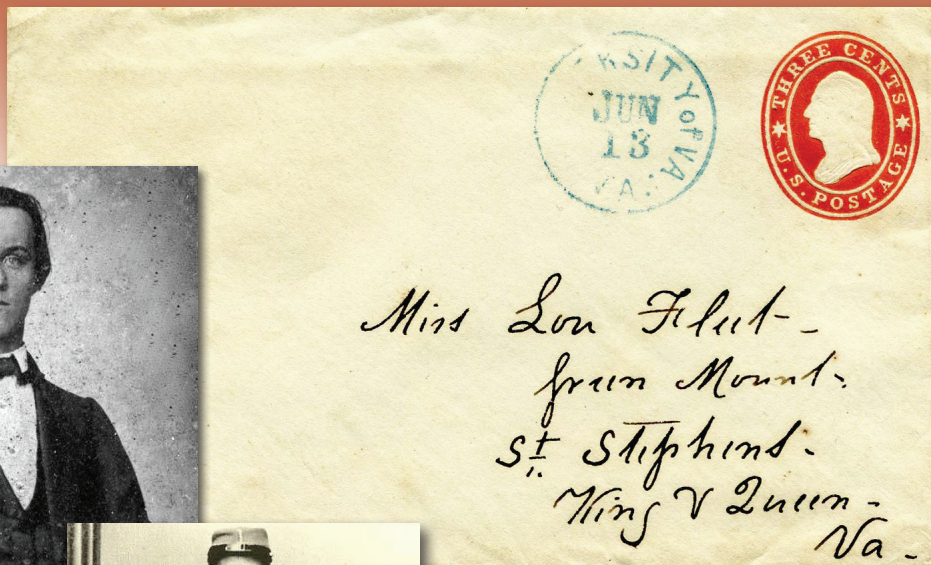 RSITY of VA.
JUN
13
VA.
THREE CENTS
U.S. POSTAGE
Miss Lou Fleet -
Green Mount -
St. Stephens -
King & Queen -
Va -